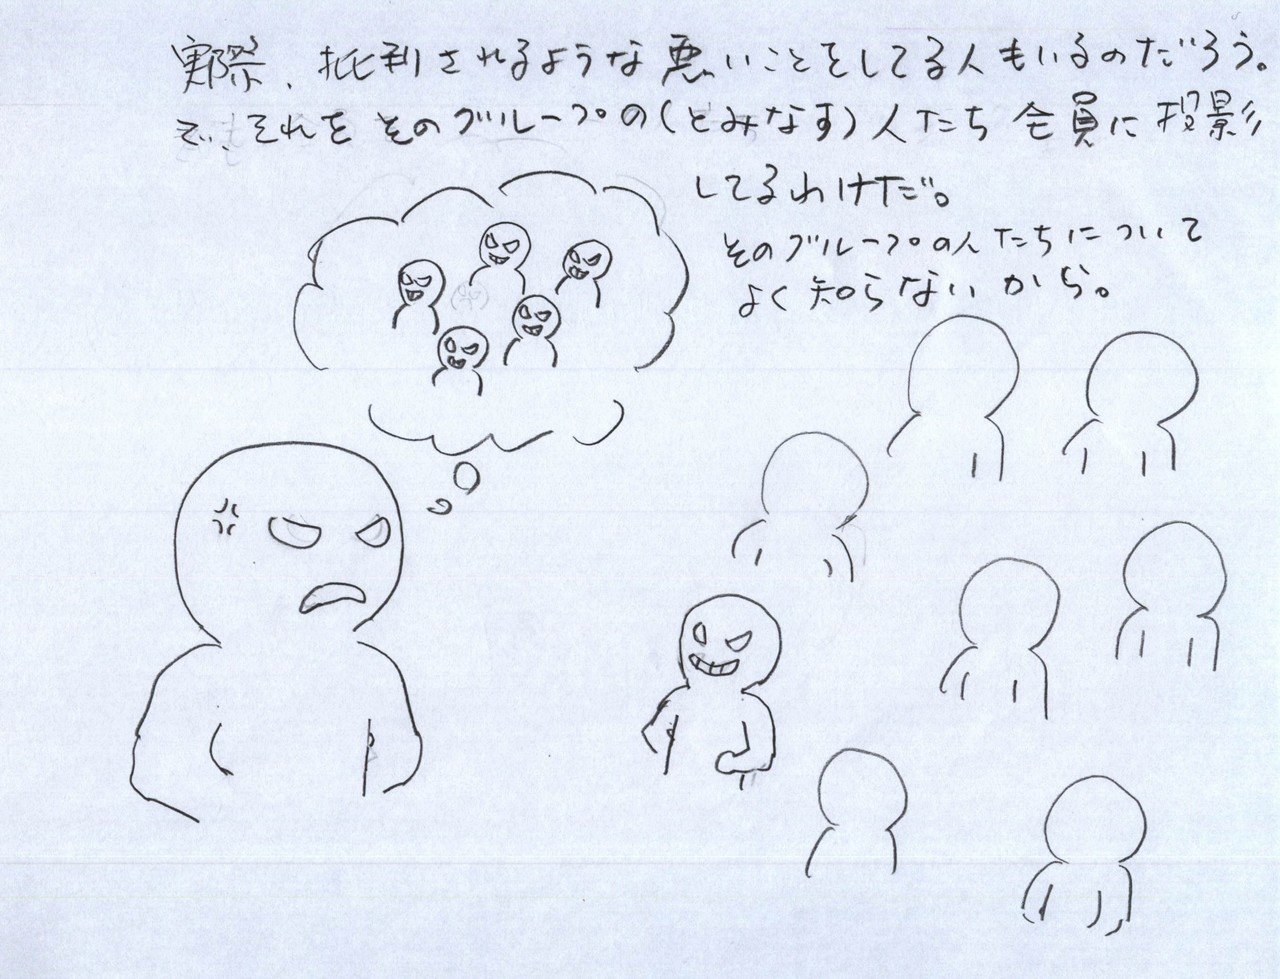 実際、批判されるような悪いことをしてる人もいるのだろう。
で、それをそのグループの(とみなす)人たち全員に投影
してるわけだ。
そのグループの人たちについて
よく知らないから。